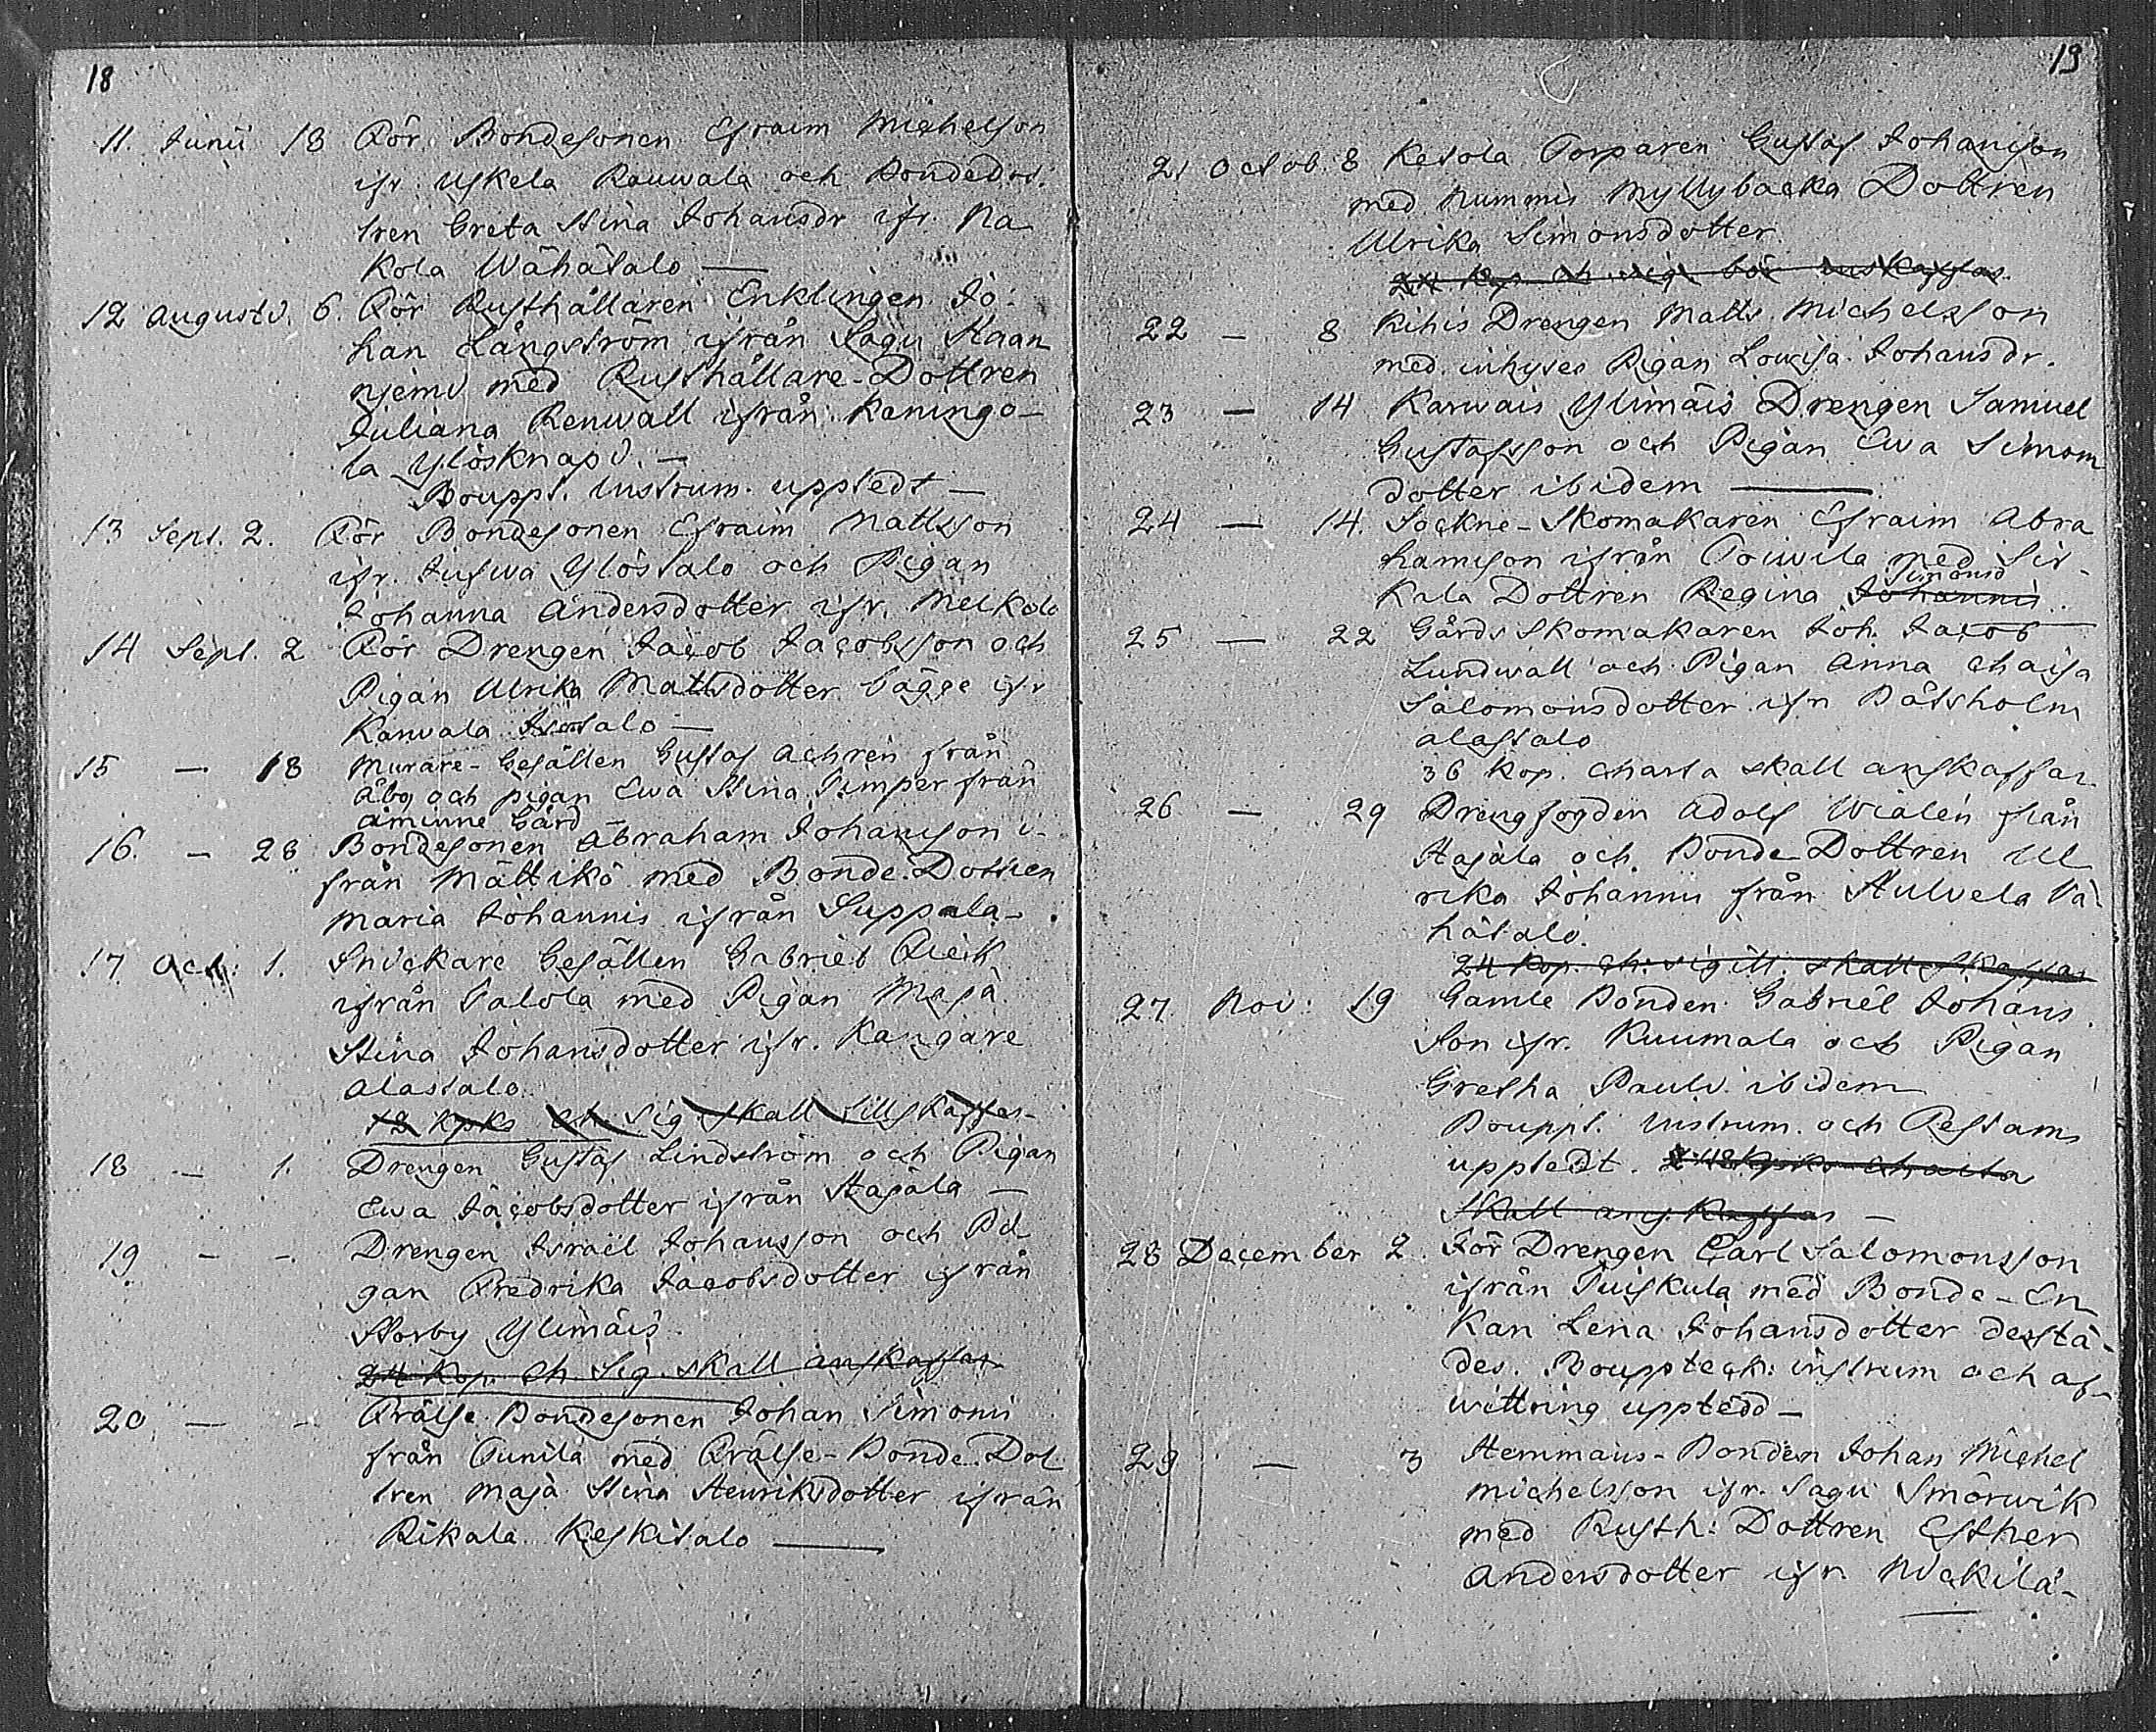 18
11. Junii 18 För Bondesonen Efraim Michelson
ifr. Uskela Rauwala och Bondedot.
tren Greta Stina Johansdr ifr. Na
kola Wähätalo —
12 Augusti. 6. För Rusthållaren Enklingen Jo-
han Långström ifrån Sagu Kaan
njemi med Rusthållare-Dottren
Juliana Renwall ifrån Kaningo-
la Ylösknapi. —
Bouppt. instrum. upptedt —
13 Sept. 2. För Bondesonen Efraim Mattsson
ifr. Juswa Ylöstalo och Pigan
Johanna Andersdotter ifr. Melkola
14 Sept. 2 För Drengen Jacob Jacobsson och
Pigan Ulrika Mattsdotter bägge ifr
Karwala Isotalo —
15 — 18 Murare-Gesällen Gustaf Achren från
Åbo och pigan Ewa Stina Timper från
Åminne Gård —
16. — 28 Bondesonen Abraham Johansson i-
från Mättikö med Bonde-Dottren
Maria Johannis ifrån Suppala-
17 Oct: 1. Snickare Gesällen Gabriel Qveik
ifrån Salola med Pigan Maja
Stina Johansdotter ifr. Kangare
Alastalo.
12 kpks ch. Sig skall tillskaffas-
18 — 1. Drengen Gustaf Lindström och Pigan
Ewa Jacobsdotter ifrån Stajala —
19 — - Drengen Israël Johansson och Pi-
gan Fredrika Jacobsdotter ifrån
Storby Ylimäis.
24 kop. ch. Sig. skall anskaffas
20, — - Frälse Bondesonen Johan Simons
från Tunila med Frälse-Bonde-Dot
tren Maja Stina Henriksdotter ifrån
Rikala Keskitalo —
19
21 Octob. 8 Ketola Torparen Gustaf Johansson
med Nummis Myllybacka Dottren
Ulrika Simonsdotter.
24 kop ch sig bör anskaffas.
22 — 8 Rihis Drengen Matts Michelsson
med inhyses Pigan Lowisa Johansdr.
23 — 14 Karwais Ylimäis Drengen Samuel
Gustafsson och Pigan Ewa Simons
dotter ibidem —
24 — 14. Sockne-Skomakaren Efraim Abra
hamson ifrån Toiwila med Sir-
Simonsd
kala Dottren Regina Johannis.
25 — 22 Gårds Skomakaren Joh. Jacob
Lundwall och Pigan Anna Chaisa
Salomonsdotter ifrn Båtsholm
Alastalo
36 kop. charta skall anskaffas
26 — 29 Drengfogden Adolf Wialén från
Stajala och Bonde Dottren Ul
rika Johannis från Hulvela Vä-
hätalo.
24 kop. ch: sigill. skall skaffas
27. Nov: 19 Gamle Bonden Gabriel Johans
son ifr. Kuumala och Pigan
Gretha Pauli ibidem
Bouppt. instrum. och Testam
upptedt. charta
skall anskaffas —
28 December 2. För Drengen Carl Salomonsson
ifrån Tuiskula med Bonde-En
kan Lena Johansdotter destä-
des. Bouppteck: instrum och af-
wittring upptedd —
29 — 3 Hemmans-Bonden Johan Michel
Michelsson ifr. Sagu Smörwik
med Rusth: Dottren Esther
Andersdotter ifr. Nickilä-